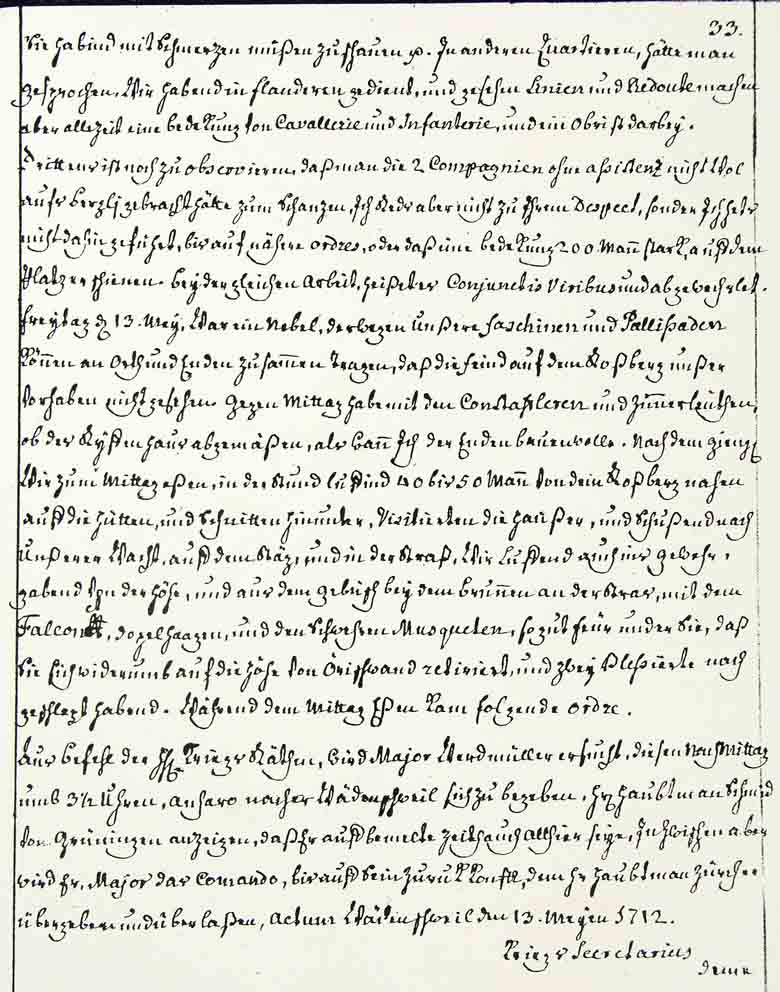 33.
Sie habind mit Schmerzen müßen zuschauen p. In anderen Quartieren, hätte man
gesprochen, Wir habend in flanderen gedient, und gesehen Linien und Redoute machen
aber allezeit eine bedekung von Cavallerie und Infanterie, und ein Obrist darbey.
Drittens ist noch zu observieren, daß man die 2 Compagnien ohne assistenz nicht Wol
aufs bergli gebracht hätte zum Schanzen, Ich Reds aber nicht zu Ihrem Despect, sonder Ich hets
nicht dahin geführt, bis auf nähere ordres, oder daß eine bedekung 200 Mañ stark, auf dem
Platz erschienen. bey dergleichen Arbeit, heißt es Conjunctis Viribus und abgewechslet.
freytag d 13. Mey, War ein Nebel, derwegen unsere faschinen und Pallisaden
können an Orth und Enden zusamen tragen, daß die feind auf dem Roßberg unser
vorhaben nicht gesehen. Gegen Mittag habe mit den Constafleren und Zimerleuthen,
ob der Rysten haus abgemäßen, als wann Ich der Enden bauen wolle. Nach dem giengt
Wir zum Mittageßen, in der Stund luffind 40 bis 50 Mañ von dem Roßberg nahen
auf die Hütten, und Schnitten hinunter, Visitierten die Häüßer, und Schußend nach
Unserer Wacht, auf dem Stäg, und in der Straß, Wir Luffend auch ins gewehr,
gabend von der Höhe, und aus dem gebüsch bey dem brunnen an der Stras, mit dem
Falconett, dopelhaagen, und den Schwehren Musqueten, so gut feür under Sie, daß
Sie sich widerumb auf die Höhe von Örischwand retiriert, und zwey blessierte nach
geschlept habend. Während dem Mittag Essen kam folgende ordre.
Aus befehl der HH. Kriegs Räthen, wird Major Werdmüller ersucht, diesen Nach Mittag
umb 3½ Uhren, anharo nacher Wädenschweil sich zu begeben, Hr. Haubtman Schmid
von Grüningen anzeigen, daß Er auf bemelte Zeit auch allhier seye, Inzwischen aber
wird Hr. Major das Comando, bis auf sein zurukkonfft, dem Hr Haubtman Zürcher
übergeben und überlaßen, Actum Wädenschweil den 13. Meyen 1712.
Kriegs Secretarius